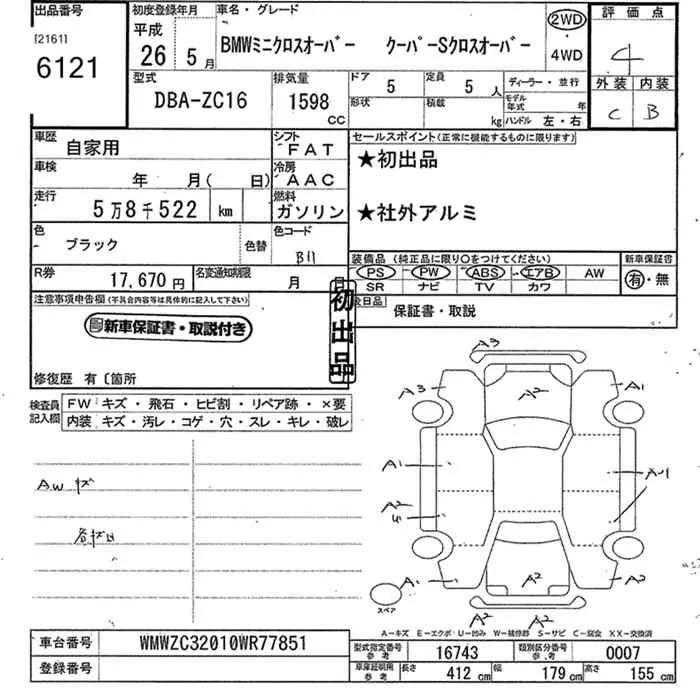 出品番号
[2161]
6121
初度登録年月
平成
26年 5月
車名・グレード
BMWミニクロスオーバー クーパーSクロスオーバー
2WD
・
4WD
評価点
4
外装 内装
C B
型式
DBA-ZC16
排気量
1598
CC
ドア
5
定員
5人
形状
積載
kg
ディーラー・並行
モデル年式 年
ハンドル 左・右
車歴
自家用
シフト
FAT
車検
年 月( 日)
冷房
AAC
走行
5万8千522 km
燃料
ガソリン
色
ブラック
色替
色コード
B11
R券
17,670円
名変通知期限
月 日
セールスポイント(正常に機能するものに限ります)
★初出品
★社外アルミ
装備品(純正品に限り○をつけてください)
PS PW ABS エアB AW
SR ナビ TV カワ
新車保証書
有・無
後日品
保証書・取説
注意事項申告欄(不具合内容等は具体的に記入して下さい)
新車保証書・取説付き
初出品
修復歴 有〔箇所
検査員記入欄
FW キズ・飛石・ヒビ割・リペア跡・×要
内装 キズ・汚レ・コゲ・穴・スレ・キレ・破レ
A.W キズ
A3
A3
A2
A1
A1
A2
A1
A2
A2
A2
A2
スペア
A-キズ E-エクボ U-凹み W-補修跡 S-サビ C-腐食 XX-交換済
車台番号
WMWZC32010WR77851
登録番号
型式指定番号
参考
16743
類別区分番号
参考
0007
車庫証明用
参考
長さ 412cm 幅 179cm 高さ 155cm